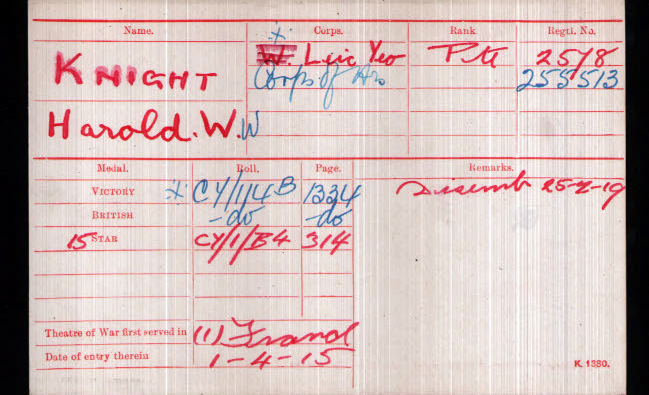 Name. Corps. Rank Regtl. No.
* W. Leic Yeo Pte 2578
KNIGHT Corps of Hrs 255513
Harold. W. W
Medal. Roll. Page. Remarks.
VICTORY * CY/1/4B 1334 Disemb 25-2-19
BRITISH -do -do
15 STAR CY/1/B4 314
Theatre of War first served in (1) France
Date of entry therein 1-4-15
K. 1380.